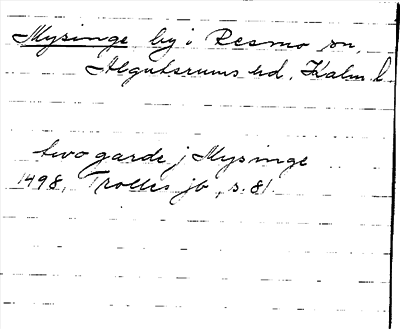 Mysinge by i Resmo sn,
Algutsrums hd, Kalm. l
two garde j Mysinge
1498, Trolles jb, s. 81.